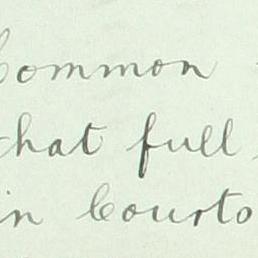 Common
that full
in Courto